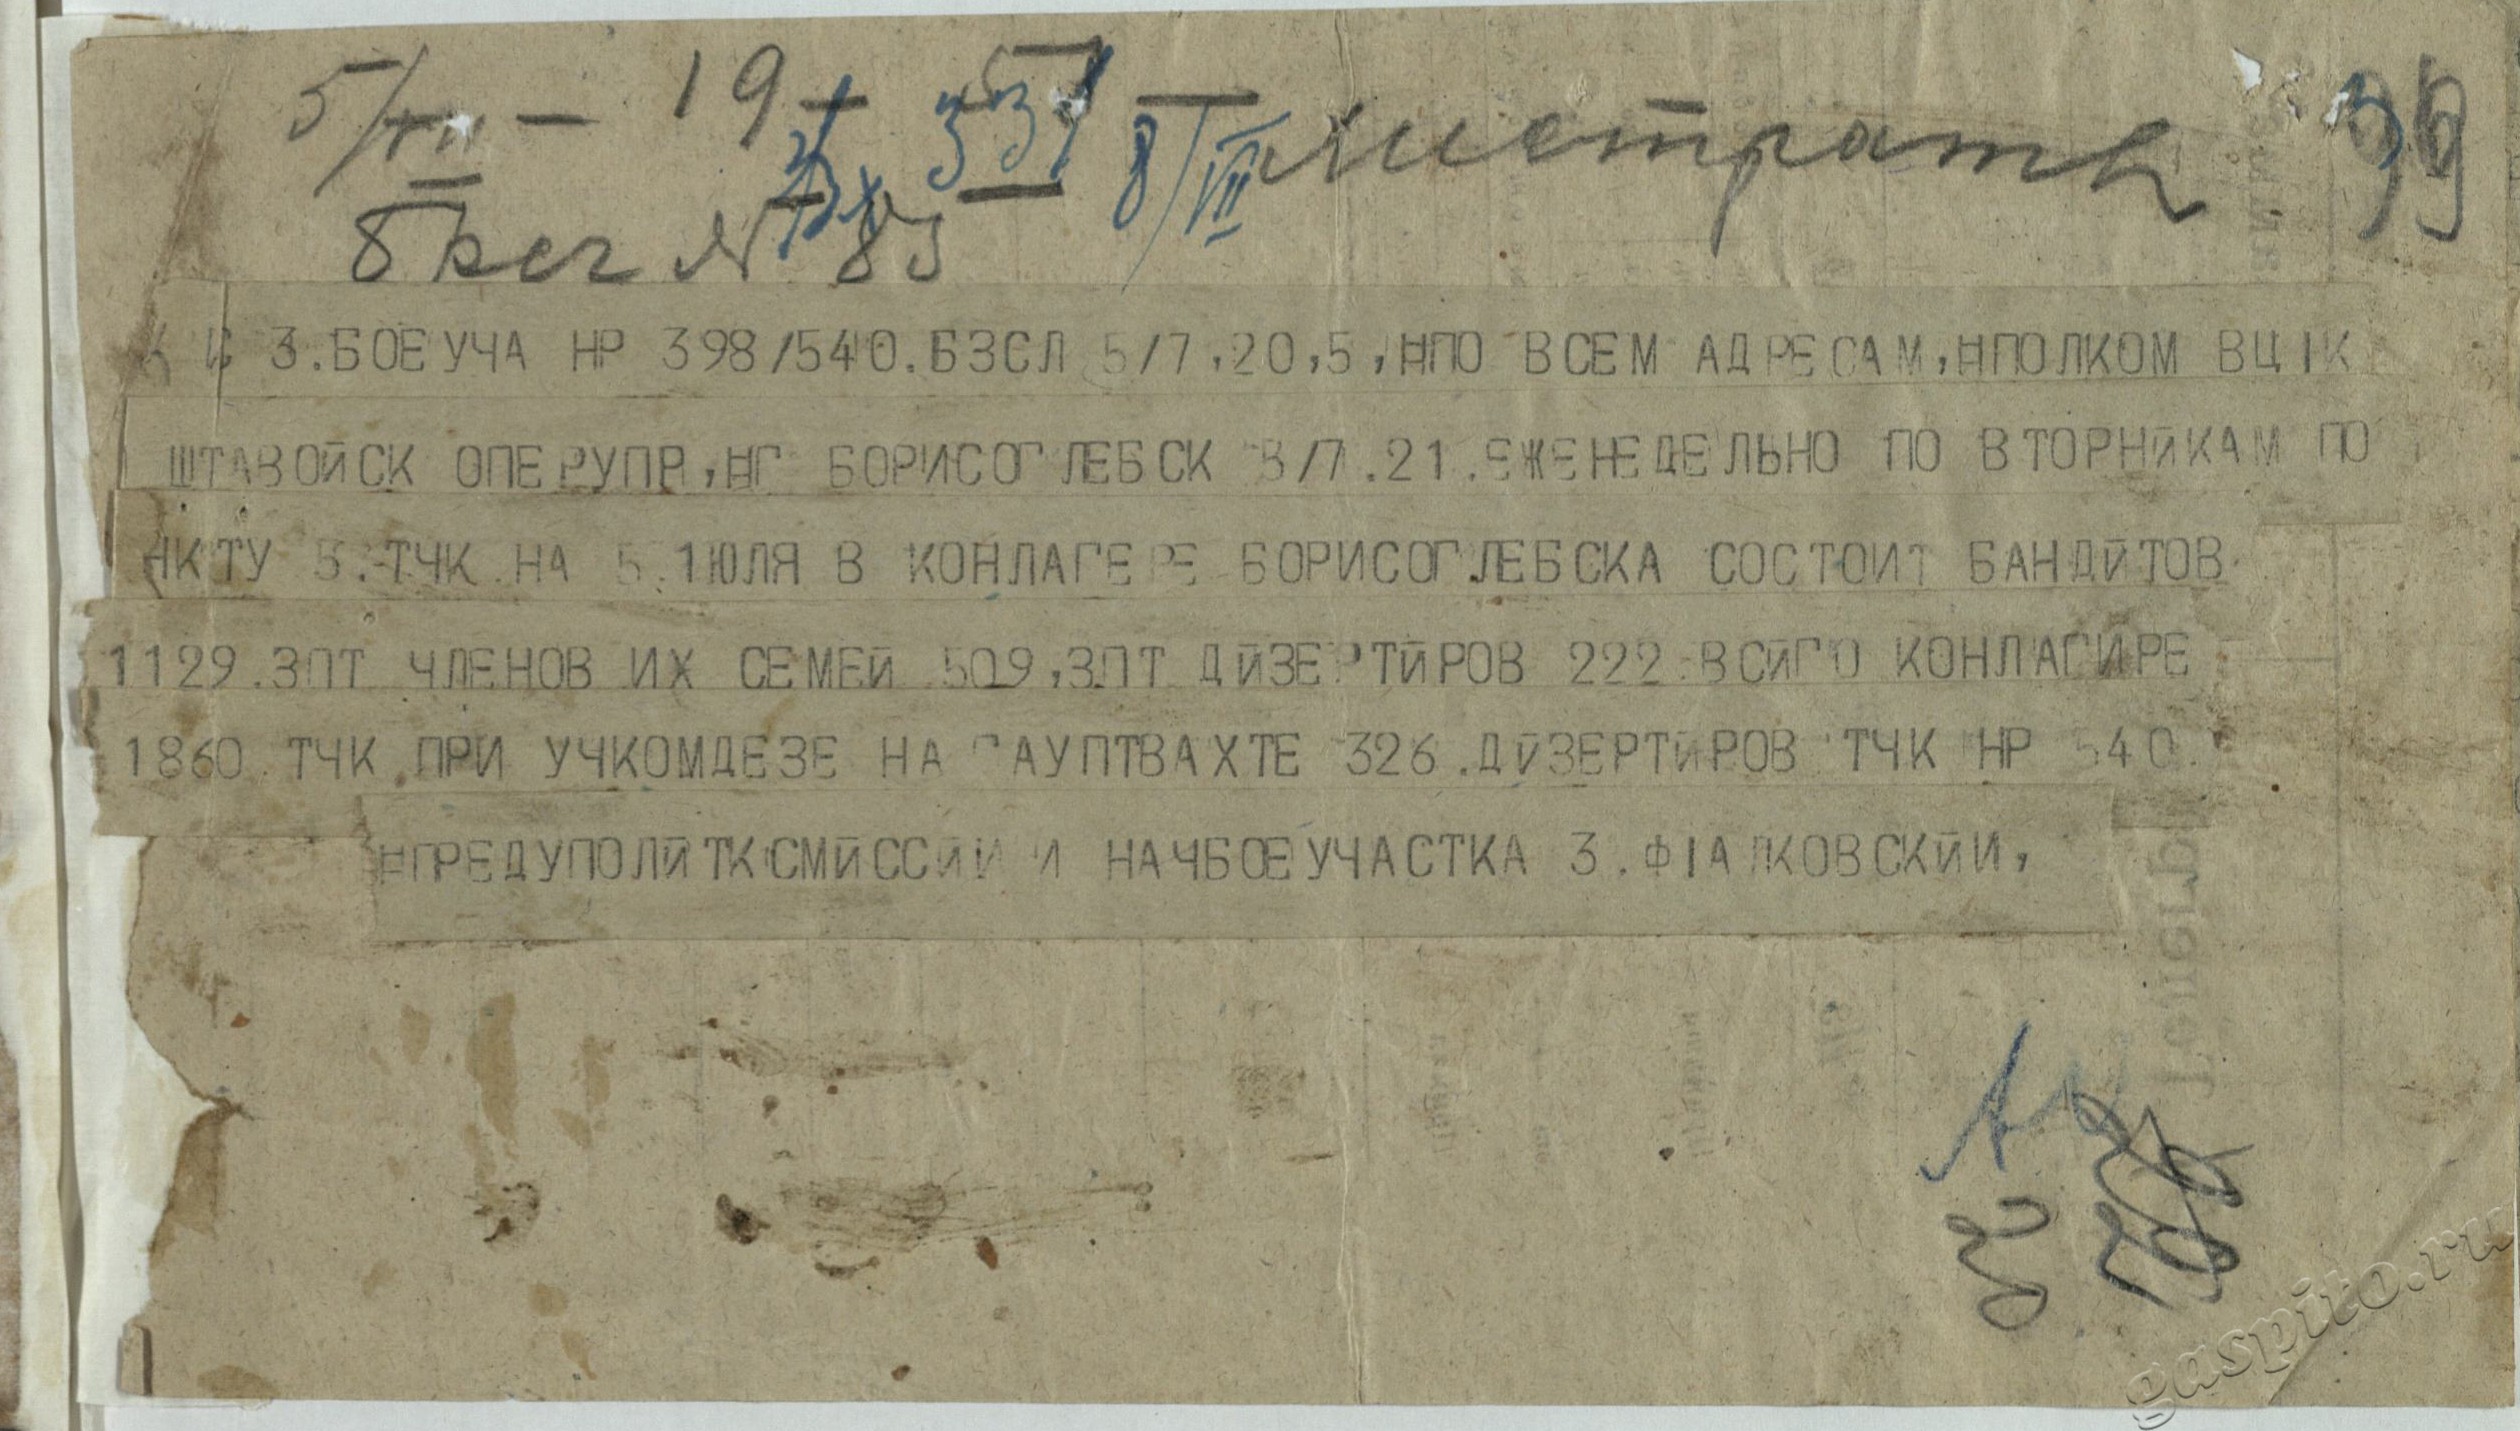 5/VII — 19
8/VII
№ 83
99
К В 3.БОЕУЧА НР 398/540.БЗСЛ 5/7,20,5,НПО ВСЕМ АДРЕСАМ,НПОЛКОМ ВЦІК
ШТАВОЙСК ОПЕРУПР,НГ БОРИСОГЛЕБСК 3/7.21.ЕЖЕНЕДЕЛЬНО ПО ВТОРНЙКАМ ПО
НКТУ 5.ТЧК НА 5.1ЮЛЯ В КОНЛАГЕРЕ БОРИСОГЛЕБСКА СОСТОИТ БАНДЙТОВ
1129.ЗПТ ЧЛЕНОВ ИХ СЕМЕЙ 509,ЗПТ ДЙЗЕРТЙРОВ 222 ВСЙГО КОНЛАГИРЕ
1860 ТЧК ПРИ УЧКОМДЕЗЕ НА ГАУПТВАХТЕ 326.ДЙЗЕРТЙРОВ ТЧК НР 540.
НПРЕДУПОЛЙТКОМЙССЙИ И НАЧБОЕУЧАСТКА 3.ФІАЛКОВСКЙИ,
gaspito.ru